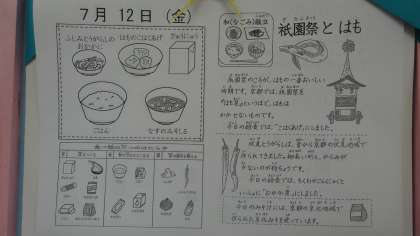 7月12日（金）
ふしみとうがらしの
おかか煮
はものこはくあげ
ぎゅうにゅう
ごはん
なすのみそしる
和（なごみ）献立
祇園祭とはも
祇園祭のころが、はもの一番おいしい
時期です。京都では、祇園祭を
「はも祭」というほど、はもは
かかせないものです。
今日の給食では、「こはくあげ」にしました。
伏見とうがらしは、昔から京都の伏見地域で
作られてきました。細長い形と、からみが
少ないのが特ちょうです。
今日の給食では、ちくわやこんにゃくと
いっしょに「おかか煮」にしました。
今日のみそ汁には、京都の京北地域で
作られたみそを使っています。